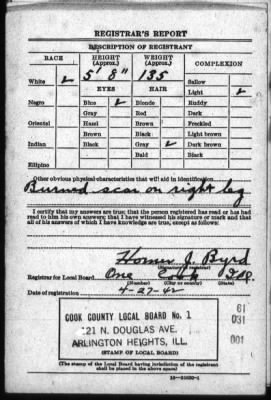 REGISTRAR'S REPORT
DESCRIPTION OF REGISTRANT
RACE HEIGHT (Approx.) WEIGHT (Approx.) COMPLEXION
5' 8" 135
White ✓ Sallow
EYES HAIR Light ✓
Negro Blue ✓ Blonde Ruddy
Gray Red Dark
Oriental Hazel Brown Freckled
Brown Black Light brown
Indian Black Gray ✓ Dark brown
Bald Black
Filipino
Other obvious physical characteristics that will aid in identification
Burned scar on right leg
I certify that my answers are true; that the person registered has read or has had
read to him his own answers; that I have witnessed his signature or mark and that
all of his answers of which I have knowledge are true, except as follows:
Homer J. Byrd
(Signature of registrar)
Registrar for Local Board One Cook Ill.
(Number) (City or county) (State)
Date of registration 4-27-42
COOK COUNTY LOCAL BOARD No. 1
121 N. DOUGLAS AVE.
ARLINGTON HEIGHTS, ILL.
(STAMP OF LOCAL BOARD)
61
031
001
(The stamp of the Local Board having jurisdiction of the registrant
shall be placed in the above space)